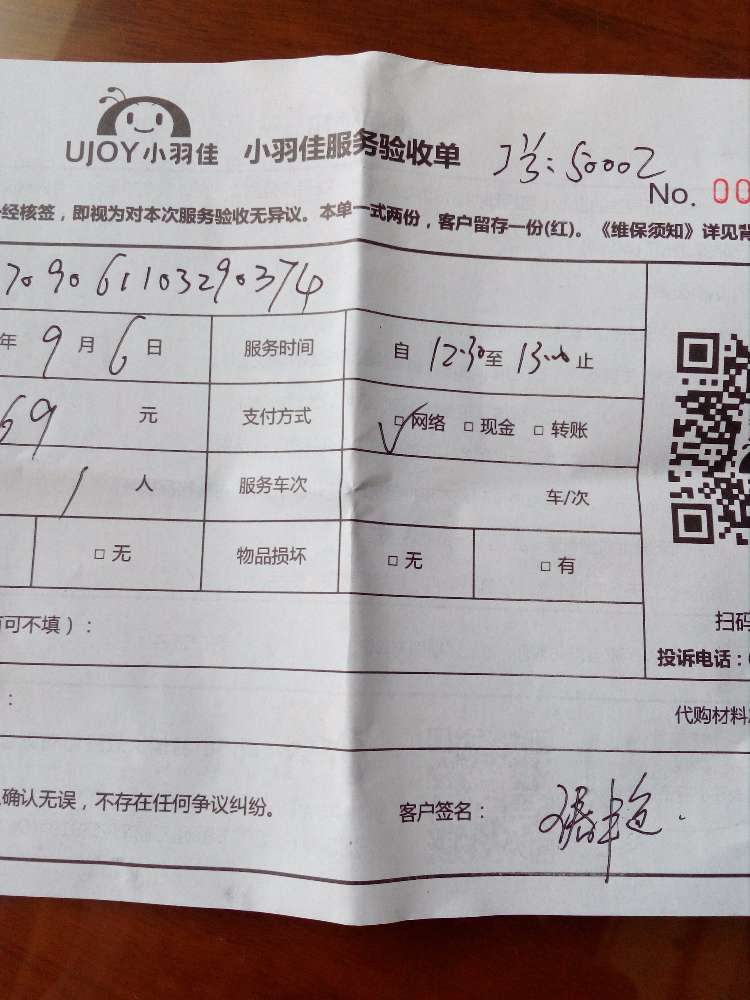 UJOY小羽佳 小羽佳服务验收单 工号:50002
No. 00
经核签，即视为对本次服务验收无异议。本单一式两份，客户留存一份(红)。《维保须知》详见背
709061103290374
年 9 月 6 日 服务时间 自 12:30 至 13:00 止
69 元 支付方式 □网络 □现金 □转账
1 人 服务车次 车/次
□无 物品损坏 □无 □有
可不填）：
扫码
投诉电话：
：
代购材料
确认无误，不存在任何争议纠纷。 客户签名：